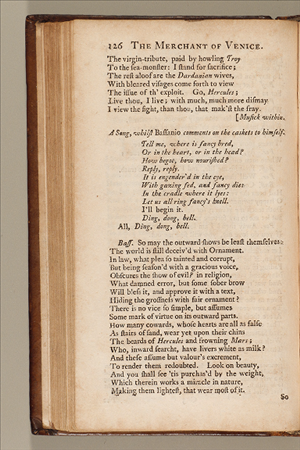 126 THE MERCHANT OF VENICE.
The virgin-tribute, paid by howling Troy
To the sea-monster: I stand for sacrifice;
The rest aloof are the Dardanian wives,
With bleared visages come forth to view
The issue of th' exploit. Go, Hercules;
Live thou, I live; with much, much more dismay
I view the fight, than thou, that mak'st the fray.
[Musick within.
A Song, whilst Bassanio comments on the caskets to himself.
Tell me, where is fancy bred,
Or in the heart, or in the head?
How begot, how nourished?
Reply, reply.
It is engender'd in the eye,
With gazing fed, and fancy dies
In the cradle where it lyes:
Let us all ring fancy's knell.
I'll begin it.
Ding, dong, bell.
All, Ding, dong, bell.
Bass. So may the outward shows be least themselves:
The world is still deceiv'd with Ornament.
In law, what plea so tainted and corrupt,
But being season'd with a gracious voice,
Obscures the show of evil? in religion,
What damned error, but some sober brow
Will bless it, and approve it with a text,
Hiding the grossness with fair ornament?
There is no vice so simple, but assumes
Some mark of virtue on its outward parts.
How many cowards, whose hearts are all as false
As stairs of sand, wear yet upon their chins
The beards of Hercules and frowning Mars;
Who, inward searcht, have livers white as milk?
And these assume but valour's excrement,
To render them redoubted. Look on beauty,
And you shall see 'tis purchas'd by the weight,
Which therein works a miracle in nature,
Making them lightest, that wear most of it.
So